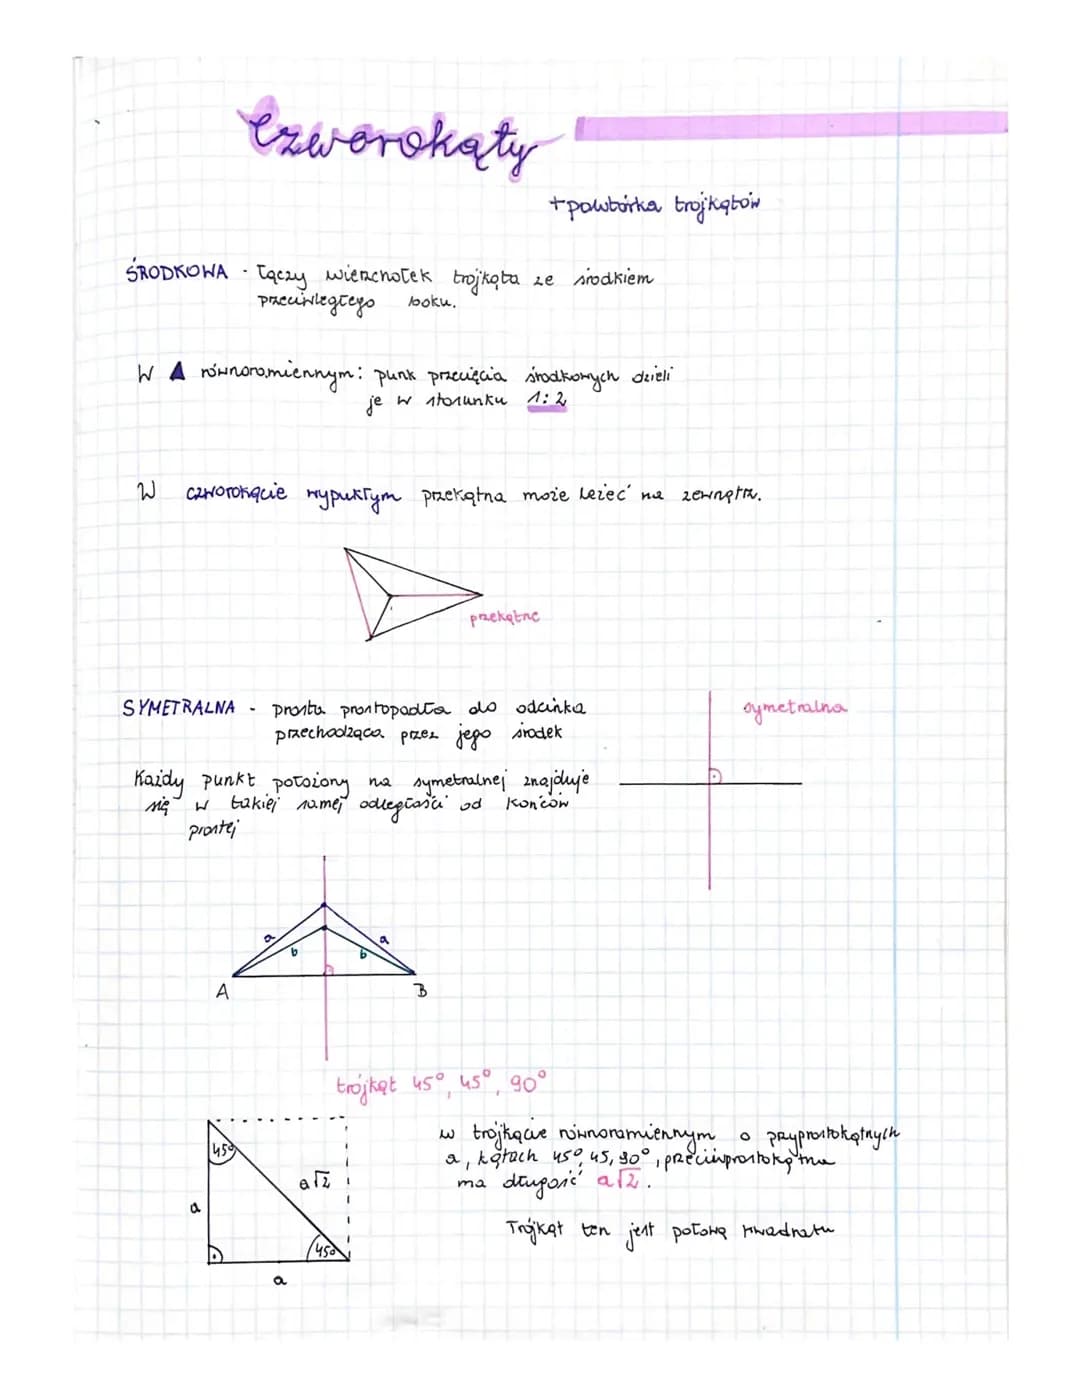 Czworokąty
+powtórka trojkątów
ŚRODKOWA - Łączy wierzchołek trojkąta ze środkiem
przeciwległego boku.
W ▲ równoramiennym: punk przecięcia środkowych dzieli
je w stosunku 1:2
W czworokącie wypukłym przekątna może leżeć na zewnątrz.
przekątne
SYMETRALNA - prosta prostopadła do odcinka
przechodząca przez jego środek
symetralna
Każdy punkt położony na symetralnej znajduje
się w takiej samej odległości od końców
prostej
a a
b b
A B
trójkąt 45°, 45°, 90°
w trójkącie równoramiennym o przyprostokątnych
a, kątach 45°, 45, 90°, przeciwprostokątna
ma długość a√2.
Trójkąt ten jest połową kwadratu
45°
a√2
a
45°
a